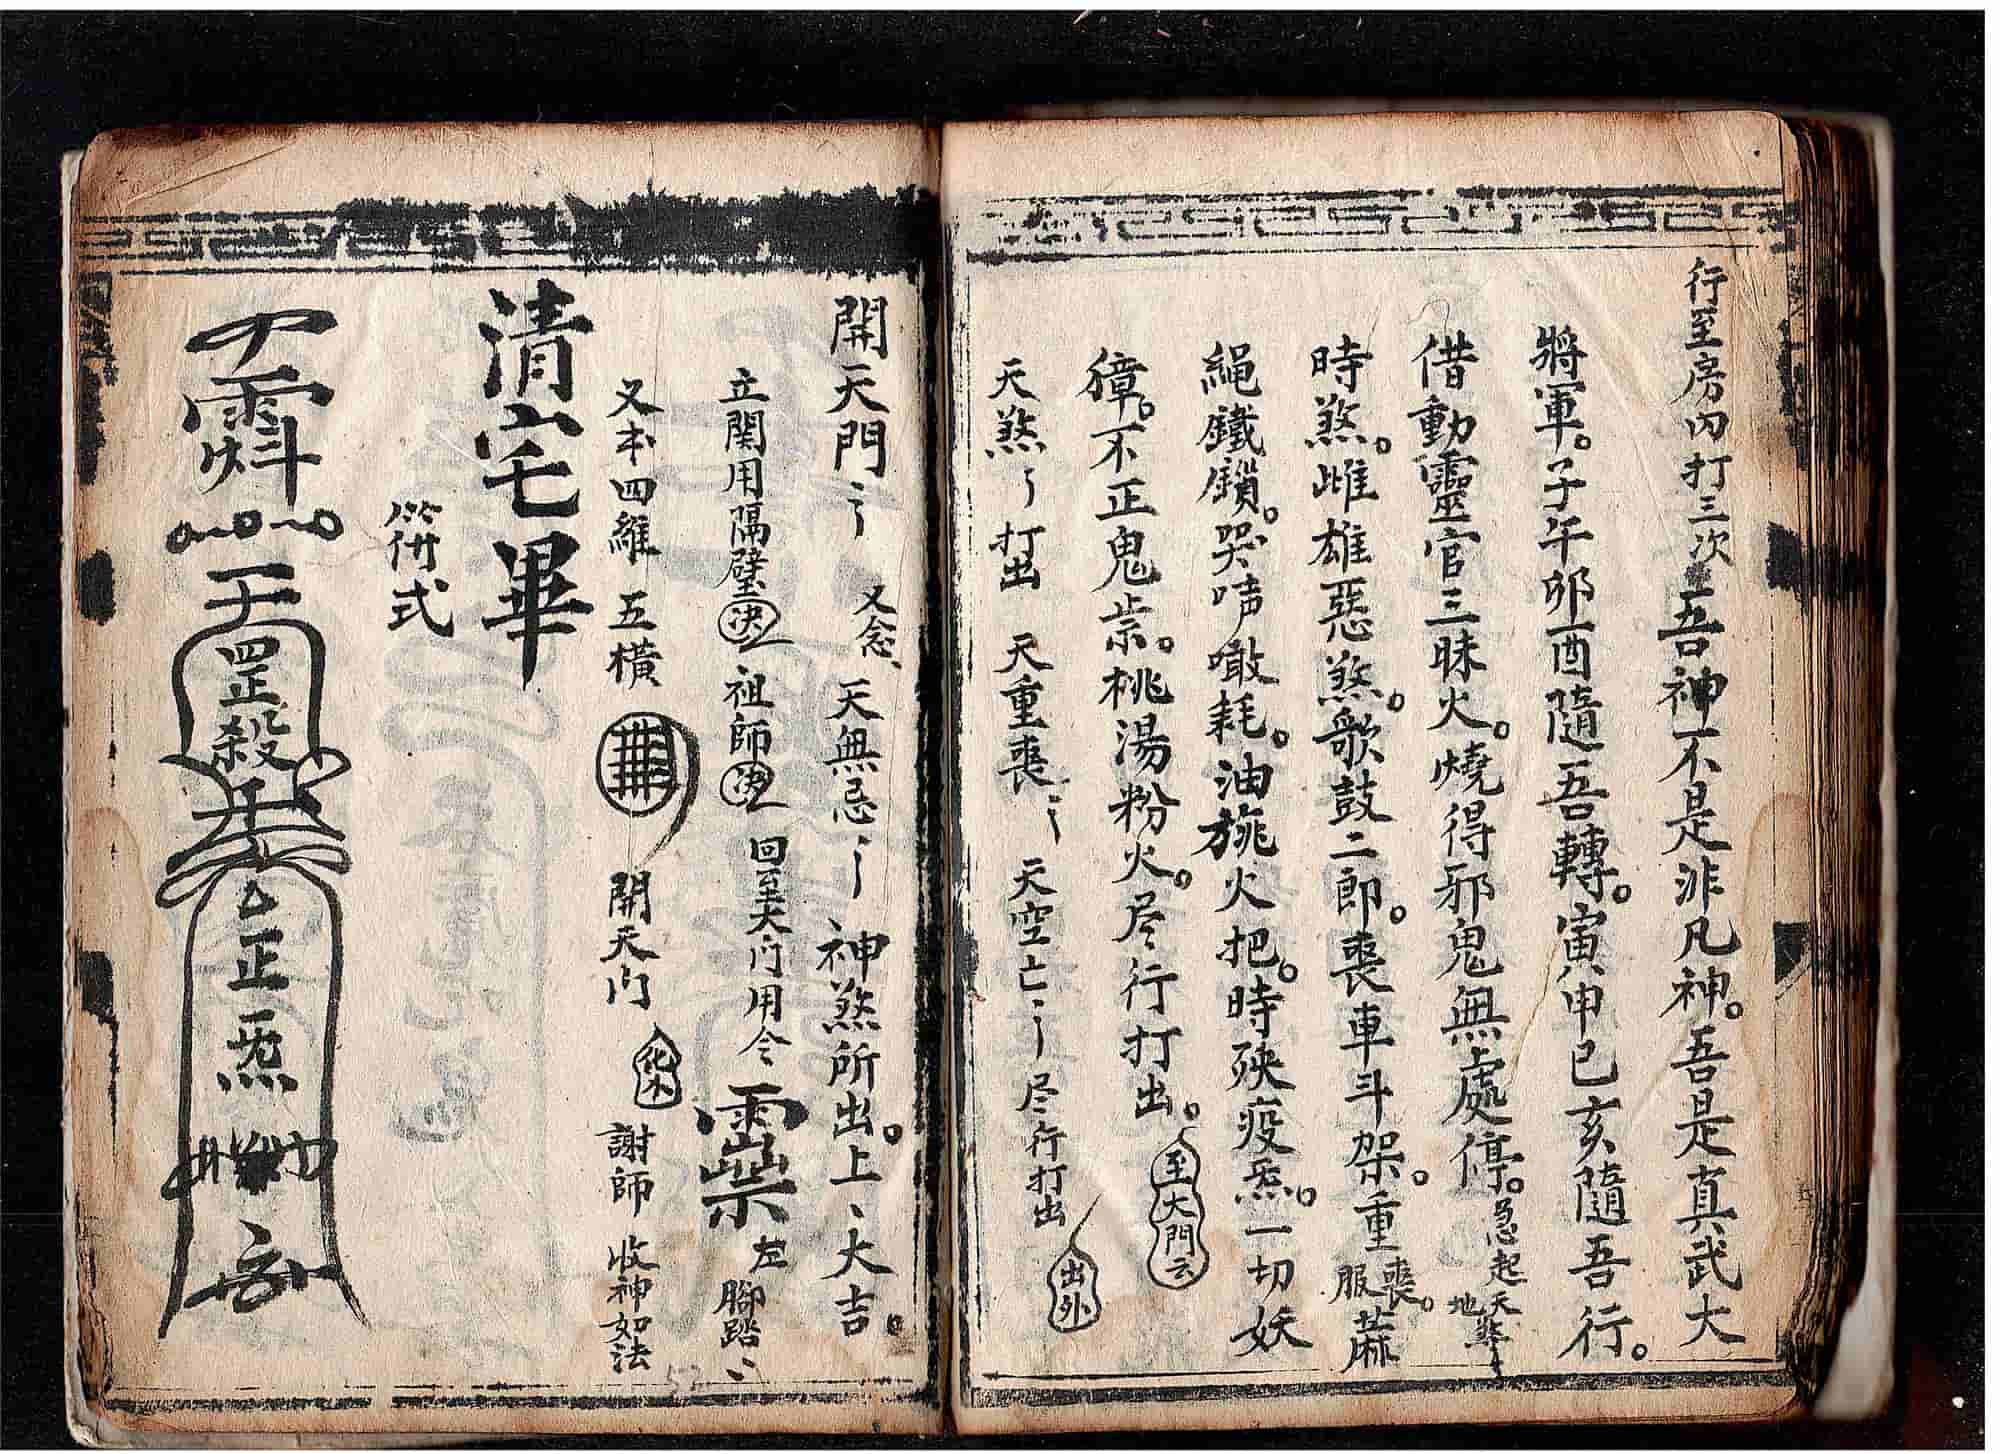 行至房內打三次吾神不是非凡神。吾是真武大
將軍。子午卯酉隨吾轉。寅申巳亥隨吾行。
借動靈官三昧火。燒得邪鬼無處停。急起天煞地
時煞。雌雄惡煞。歌鼓二郎。喪車斗架。重喪。服麻
繩鐵鎖。哭声瞰耗。油旐火把。時殃疫炁。一切妖
獐。不正鬼祟。桃湯粉火。尽行打出。至大門云
天煞打出 天重喪 天空亡 尽行打出 出外
開天門 又念 天無忌 神煞所出。上大吉。
立閣用隔壁决 祖師决 回至大门用令 左腳踏
又本四維五橫 開天门 化水 謝師 收神如法
清宅畢
符式
罡殺
正炁